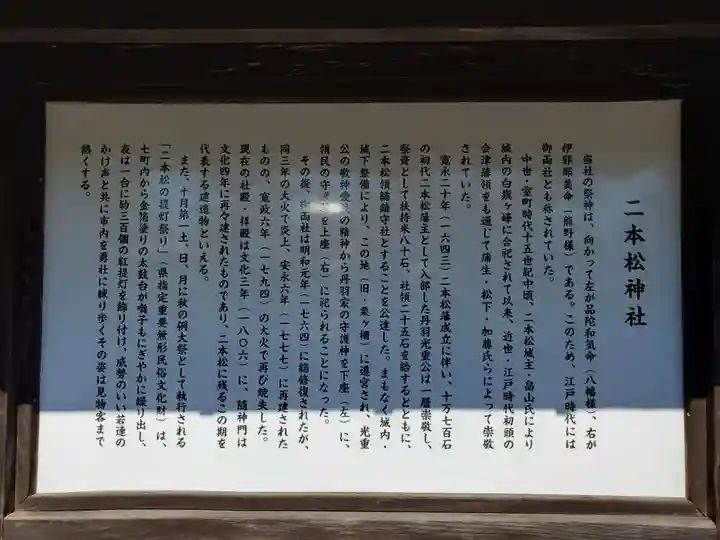 二本松神社
当社の祭神は、向かって左が品陀和気命（八幡様）、右が
伊邪那美命（熊野様）である。このため、江戸時代には
御両社とも称されていた。
中世・室町時代十五世紀中頃、二本松城主・畠山氏により
城内の白旗ヶ峰に合祀されて以来、近世・江戸時代初頭の
会津藩領をも通じて蒲生・松下・加藤氏らによって崇敬
されていた。
寛永二十年（一六四三）二本松藩成立に伴い、十万七百石
の初代二本松藩主として入部した丹羽光重公は一層崇敬し、
祭資として扶持米八十石、社領二十五石を給するとともに、
二本松領総鎮守社とすることを公達した。まもなく城内・
城下整備により、この地（旧・栗ヶ柵）に遷宮され、光重
公の敬神愛民の精神から丹羽家の守護神を下座（左）に、
領民の守を上座（右）に祀られることになった。
その後、御両社は明和元年（一七六四）に総修復されたが、
同三年の大火で炎上、安永六年（一七七七）に再建された
ものの、寛政六年（一七九四）の大火で再び焼失した。
現在の社殿・拝殿は文化三年（一八〇六）に、随神門は
文化四年に再々建されたものであり、二本松に残るこの期を
代表する建造物といえる。
また、十月第一土、日、月に秋の例大祭として執行される
「二本松の提灯祭り」（県指定重要無形民俗文化財）は、
七町内から金箔塗りの太鼓台が囃子もにぎやかに繰り出し、
夜は一台に約三百個の紅提灯を飾り付け、威勢のいい若連の
かけ声と共に市内を勇壮に練り歩くその姿は見物客まで
熱くする。